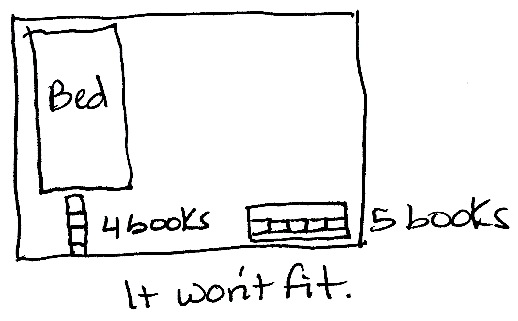 Bed
4 books
5 books
It won't fit.